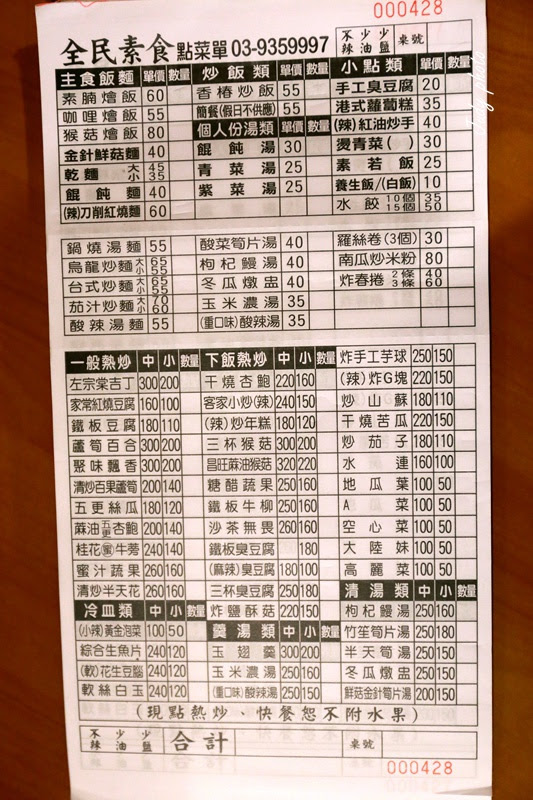 000428
全民素食點菜單 03-9359997 不辣 少油 少鹽 桌號
主食飯麵 單價 數量 炒飯類 單價 數量 小點類 單價 數量
素腩燴飯 60 香椿炒飯 55 手工臭豆腐 20
咖哩燴飯 55 簡餐(假日不供應) 55 港式蘿蔔糕 35
猴菇燴飯 80 個人份湯類 單價 數量 (辣)紅油炒手 40
金針鮮菇麵 40 餛飩湯 30 燙青菜( ) 30
乾麵 大小 45 35 青菜湯 25 素若飯 25
餛飩麵 40 紫菜湯 25 養生飯/(白飯) 10
(辣)刀削紅燒麵 60 水餃 10個 15個 35 50
鍋燒湯麵 55 酸菜筍片湯 40 羅絲卷(3個) 30
烏龍炒麵 大小 65 55 枸杞鰻湯 40 南瓜炒米粉 80
台式炒麵 大小 65 55 冬瓜燉盅 40 炸春捲 2條 3條 40 60
茄汁炒麵 大小 70 60 玉米濃湯 35
酸辣湯麵 55 (重口味)酸辣湯 35
一般熱炒 中 小 數量 下飯熱炒 中 小 數量 炸手工芋球 250 150
左宗棠吉丁 300 200 干燒杏鮑 220 160 (辣)炸G塊 220 150
家常紅燒豆腐 160 100 客家小炒(辣) 240 150 炒山蘇 180 110
鐵板豆腐 180 110 (辣)炒年糕 180 120 干燒苦瓜 220 150
蘆筍百合 300 200 三杯猴菇 300 200 炒茄子 180 110
聚味飄香 300 200 昌旺麻油猴菇 320 220 水蓮 160 100
清炒百果蘆筍 200 140 糖醋蔬果 250 160 地瓜葉 100 50
五更絲瓜 180 120 鐵板牛柳 250 150 A菜 100 50
麻油五更杏鮑 200 140 沙茶無畏 260 160 空心菜 100 50
桂花(蜜)牛蒡 240 140 鐵板臭豆腐 180 大陸妹 100 50
蜜汁蔬果 260 160 (麻辣)臭豆腐 180 100 高麗菜 100 50
清炒半天花 260 160 三杯臭豆腐 250 180 清湯類 中 小 數量
冷皿類 中 小 數量 炸鹽酥菇 220 150 枸杞鰻湯 250 160
(小辣)黃金泡菜 100 50 羹湯類 中 小 數量 竹笙筍片湯 250 180
綜合生魚片 240 120 玉翅羹 300 200 半天筍湯 250 150
(軟)花生豆腦 240 120 玉米濃湯 250 160 冬瓜燉盅 250 150
軟絲白玉 240 120 (重口味)酸辣湯 250 150 鮮菇金針筍片湯 200 150
(現點熱炒、快餐恕不附水果)
不辣 少油 少鹽 合計 桌號
000428